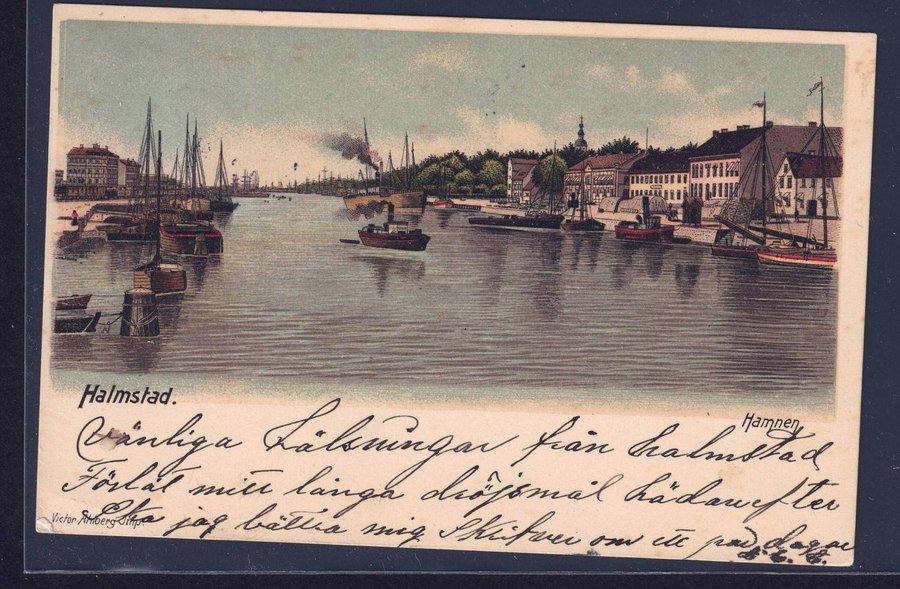 Halmstad.
Hamnen
Vänliga hälsningar från Halmstad
Förlåt mitt långa dröjsmål hädanefter
Ska jag bättra mig Skrifver om ett par dagar
Victor Ahlberg Imp.